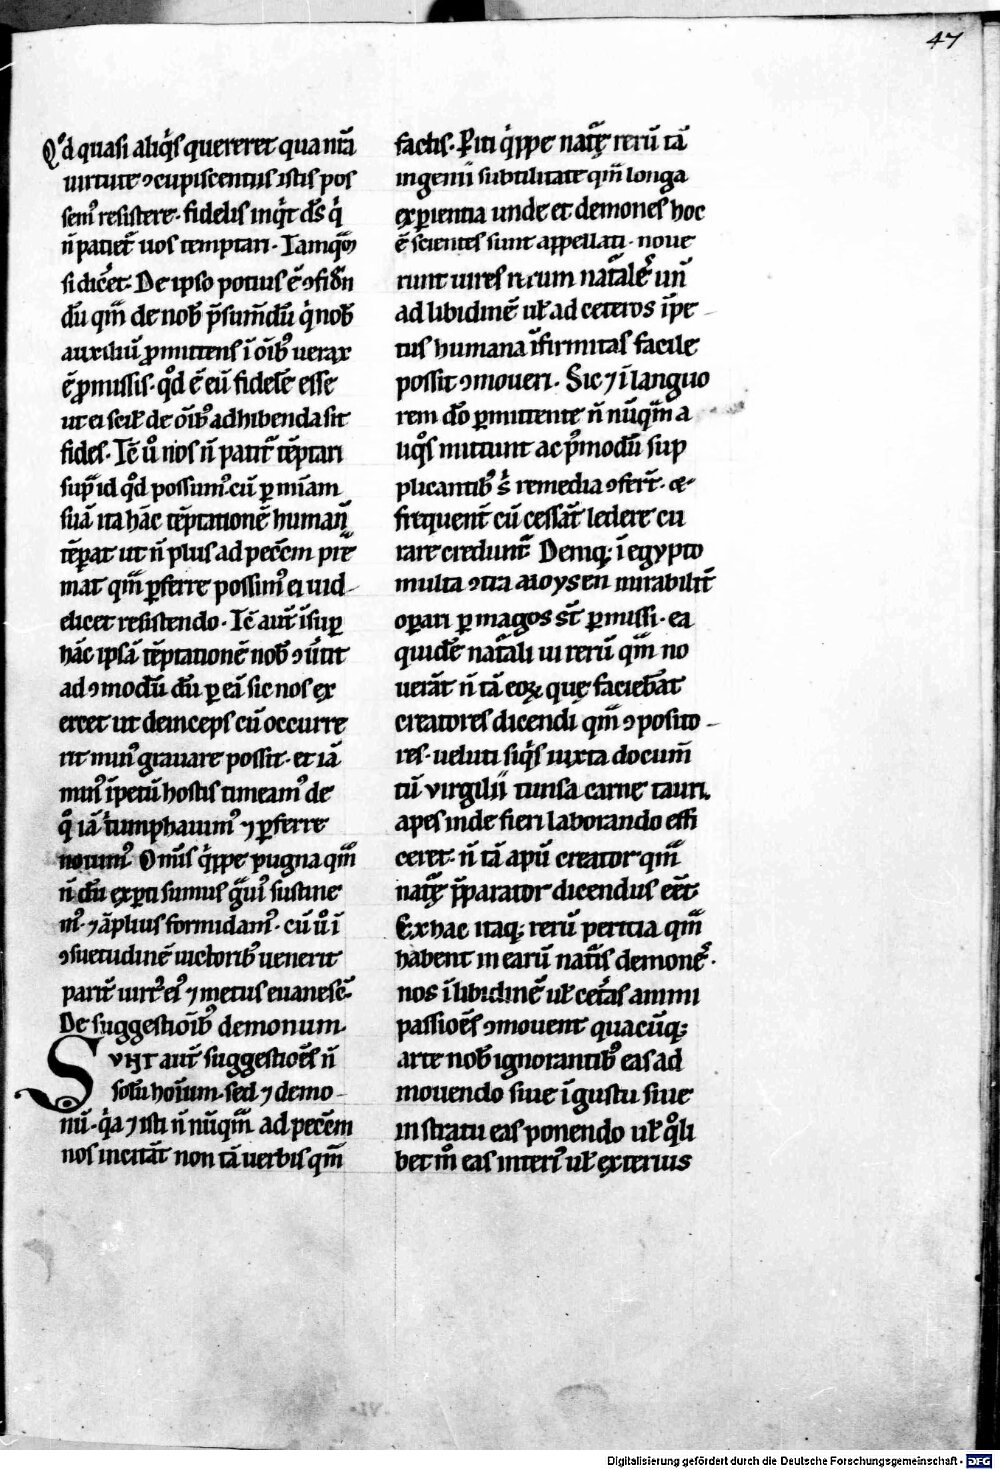 47
Qd quasi aliqͥs quereret quantā
uirtute ↄcupiscentiis istis pos
semꝰ resistere. fidelis inqͥt dīs qͥ
n̄ patietͬ uos temptari. Iamqͣm
si dicēt. De ipso potius ē ↄfidn̄
dū qm̄ de nob̄ p̄sumdū qͥ nob̄
auxiliū ꝓmittens ī oīb; uerax
ē ꝓmissis. qd̄ ē eū fidelē esse
ut ei scil̄ de oīb; adhibenda sit
fides. Tc̄ ū nos n̄ patitͬ tēptari
sup̄ id qd̄ possumꝰ. cū ꝑ mīam
suā ita hāc tēptationē humanā
tēperat ut n̄ plus ad pecc̄m pre
mat qm̄ ꝑferre possimꝰ ei uid
elicet resistendo. Tc̄ aut̄ īsuꝑ
hāc ipsā tēptationē nob̄ ↄuͥtit
ad ↄmodū dū ꝑ eā sic nos ex
ercet ut deinceps cū occurre
rit minꝰ grauare possit. et iā
minꝰ īpetū hostis timeamꝰ de
qͦ iā tͥumphauimꝰ ⁊ ꝑferre
nouimꝰ. Omīs qͥppe pugna qm̄
n̄ dū exꝑti sumus gͣuiꝰ sustine
mꝰ. ⁊ āplius formidamꝰ. cū ū ī
ↄsuetudinē uictorib; uenerit
parit̄ uirtꝰ eiꝰ ⁊ metus euanesc̄.
De suggestioīb; demonum.
Sunt aut̄ suggestiōes n̄
solū hoīum. sed ⁊ demo-
nū. qͥa ⁊ isti n̄ nūqm̄ ad pecc̄m
nos incitāt non tā uerbis qm̄
factis. Ꝑiti qͥppe natͬę rerū tā
ingenii subtilitate qm̄ longa
exꝑientia unde et demones hoc
ē scientes sunt appellati. noue
runt uires rerum natͣles̄ un̄
ad libidinē ul̄ ad ceteros īpe-
tus humana īfirmitas facile
possit ↄmoueri. Sic ⁊ ī languo
rem dō ꝑmittente n̄ nūqm̄ a
liqͦs mittunt ac pͦmodū sup
plicantib; s̄ remedia ↄfert̄. ce
frequent̄ cū cessāt ledere cu
rare creduntͬ. Deniq; ī egypto
multa ↄtra moysen mirabilit̄
oꝑari ꝑ magos st̄ ꝑmissi. ea
quidē natͣli ui rerū qm̄ no
uerāt n̄ tā eoꝝ quę faciebāt
creatores dicendi qm̄ ↄposito-
res. ueluti siqͥs iuxta docum̄
tū virgilii tunsa carne tauri.
apes inde fieri laborando effi
ceret. n̄ tā apū creator qm̄
natͬę p̄parator dicendus eēt.
Ex hac itaq; rerū peritia qm̄
habent in earū natͥs demonē.
nos ī libidinē ul̄ cetͣas animi
passiōes ↄmouent quacūq;
arte nob̄ ignorantib; eas ad
mouendo siue ī gustu siue
in stratu eas ponendo ul̄ qͦli
bet mͦ eas interiꝰ ul̄ exterius
Digitalisierung gefördert durch die Deutsche Forschungsgemeinschaft - DFG